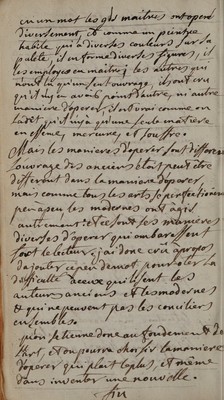 en un mot les gds maitres ont operé
Diversement, et comme un peintre
habile qui a diverses couleurs sur sa
palete, il en forme diverses figures, il
les employe en maitre; les autres qui
n'ont lû qu'un seul ouvrage, ils ont crû
qu'il n'y en avoit point d'autre, ni autre
maniere d'operer, il est vrai comme on
l'a dit qu'il n'y a qu'une seule matiere
en essence, mercure, et souffre.
Mais les manieres d'operer sont differentes
l'ouvrage des anciens etait peut être
different dans la maniere d'operer
mais comme tous les arts se perfectionnent
peu a peu les modernes ont agit
autrement: et ce sont les manieres
diverses d'operer qui embarassent
fort le lecteur, j'ai donc crû apropos
d'ajouter ce peu de mot pour oter la
difficulté a ceux qui lisent les
auteurs anciens et les modernes
& qui ne peuvent pas les concilier
ensembles.
qu'on se tienne donc au fondement de
l'art, et on pourra choisir la maniere
d'operer qui plait le plus, et même
d'en inventer une nouvelle.
fin